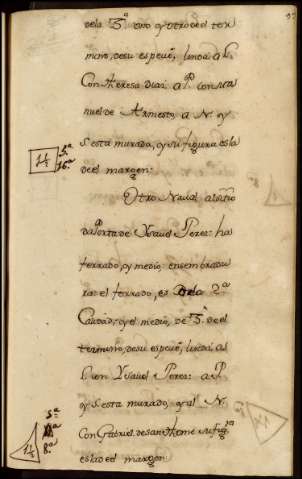 dela 3ª uno y otro de el ter
mino, de su especie, linda a L.
Con Theresa Dias: a P. con Ma
nuel de Armesto, a N. y
S. esta murada, y su figura es la
de el margen:
1½ 5ª 16ª
Otro Naval al sitio
da Porta de Ysavel Perez: ha
ferrado, y medio ensembradu
ra: el ferrado, es dela 2ª
Calidad; y el medio, de 3ª de el
termino, de su especie, linda: al
L. con Ysavel Perez: a P.
y S. esta murado, y al N.
Con Gabriel de San Thome su figª
es la de el margen
1½ 5ª 8ª